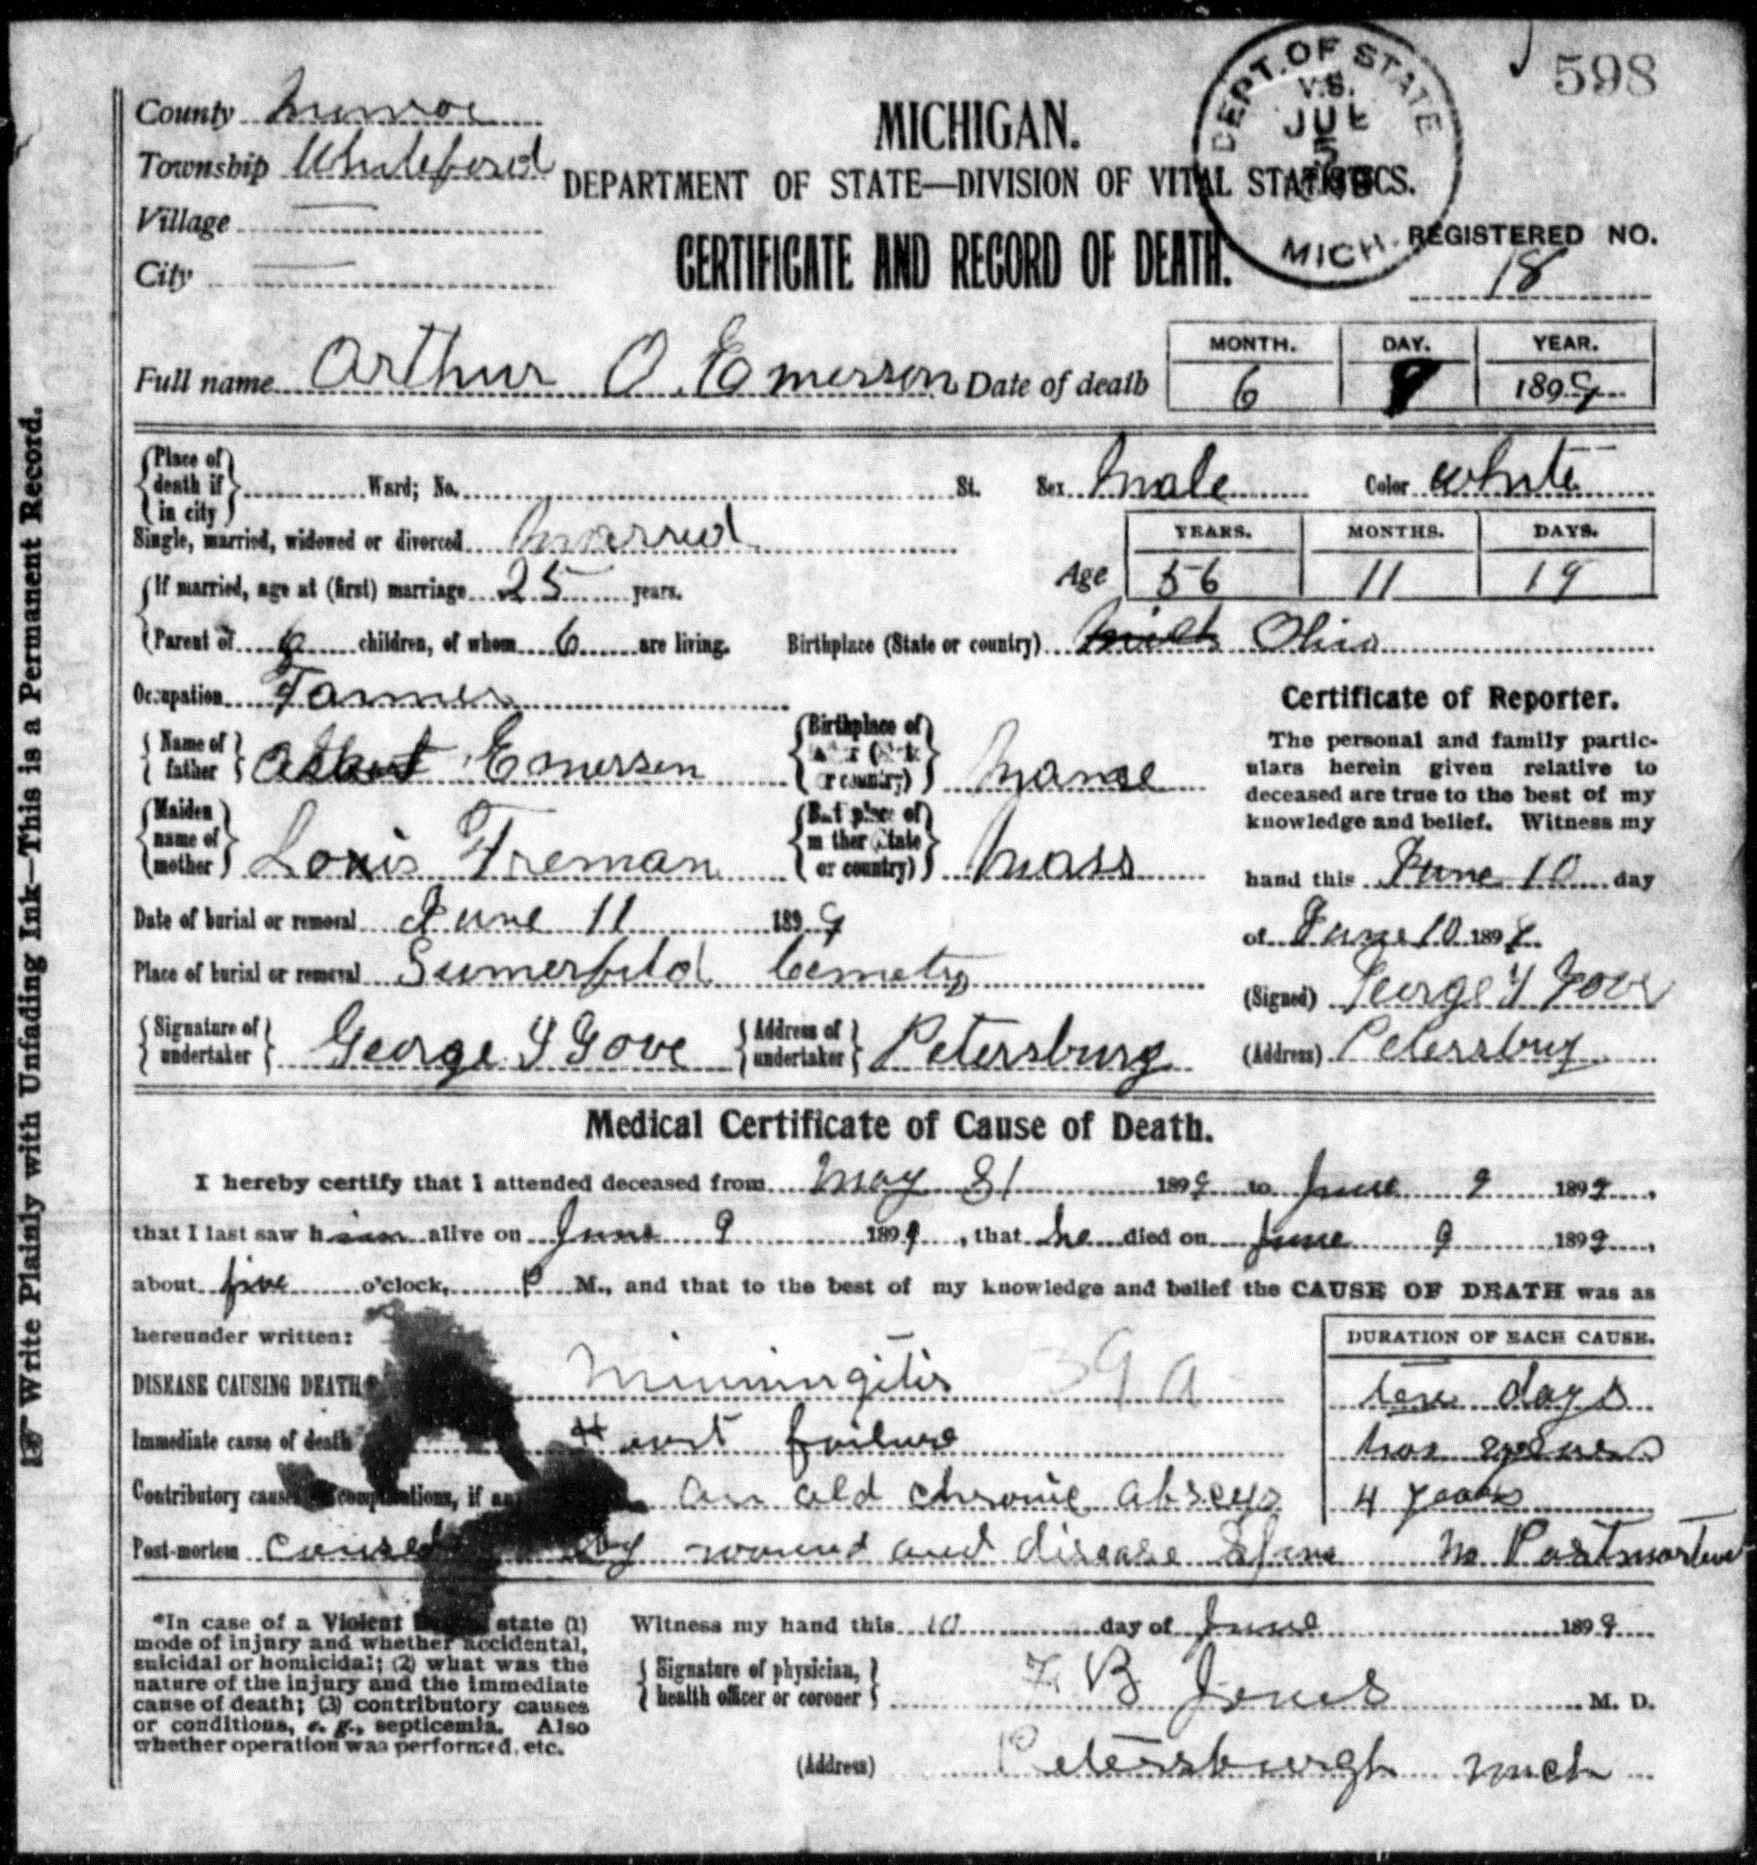 598
County Munroe
Township Whiteford
Village
City
MICHIGAN.
DEPARTMENT OF STATE—DIVISION OF VITAL STATISTICS.
CERTIFICATE AND RECORD OF DEATH.
DEPT. OF STATE
V.S.
JUL
5
MICH.
REGISTERED NO.
18
Full name Arthur O. Emerson Date of death
MONTH. DAY. YEAR.
6 9 1899
Place of death if in city Ward; No. St. Sex Male Color White
Single, married, widowed or divorced Married
Age YEARS. MONTHS. DAYS.
56 11 19
If married, age at (first) marriage 25 years.
Parent of 6 children, of whom 6 are living. Birthplace (State or country) Mich Ohio
Occupation Farmer
Name of father Emerson Birthplace of father (State or country)
Maiden name of mother Lovis Freman Birthplace of mother (State or country) Mass
Date of burial or removal June 11 1899
Place of burial or removal Sumerfild Cemetry
Signature of undertaker George Y Gove Address of undertaker Petersburg
Certificate of Reporter.
The personal and family partic-
ulars herein given relative to
deceased are true to the best of my
knowledge and belief. Witness my
hand this June 10 day
of June 10 1899.
(Signed) George Y Gove
(Address) Petersburg
Medical Certificate of Cause of Death.
I hereby certify that I attended deceased from May 31 1899 to June 9 1899,
that I last saw him alive on June 9 1899, that he died on June 9 1899,
about five o'clock, P M., and that to the best of my knowledge and belief the CAUSE OF DEATH was as
hereunder written:
DURATION OF EACH CAUSE.
DISEASE CAUSING DEATH* Minningitis 39a ten days
Immediate cause of death Heart failure
Contributory causes or complications, if any an old chronic absceys 4 years
Post-mortem caused by wound and disease Spine No Postmortem
*In case of a Violent Death state (1)
mode of injury and whether accidental,
suicidal or homicidal; (2) what was the
nature of the injury and the immediate
cause of death; (3) contributory causes
or conditions, e. g., septicemia. Also
whether operation was performed, etc.
Witness my hand this 10 day of June 1899
Signature of physician, health officer or coroner B Jones M. D.
(Address) Petersburgh Mich
Write Plainly with Unfading Ink—This is a Permanent Record.